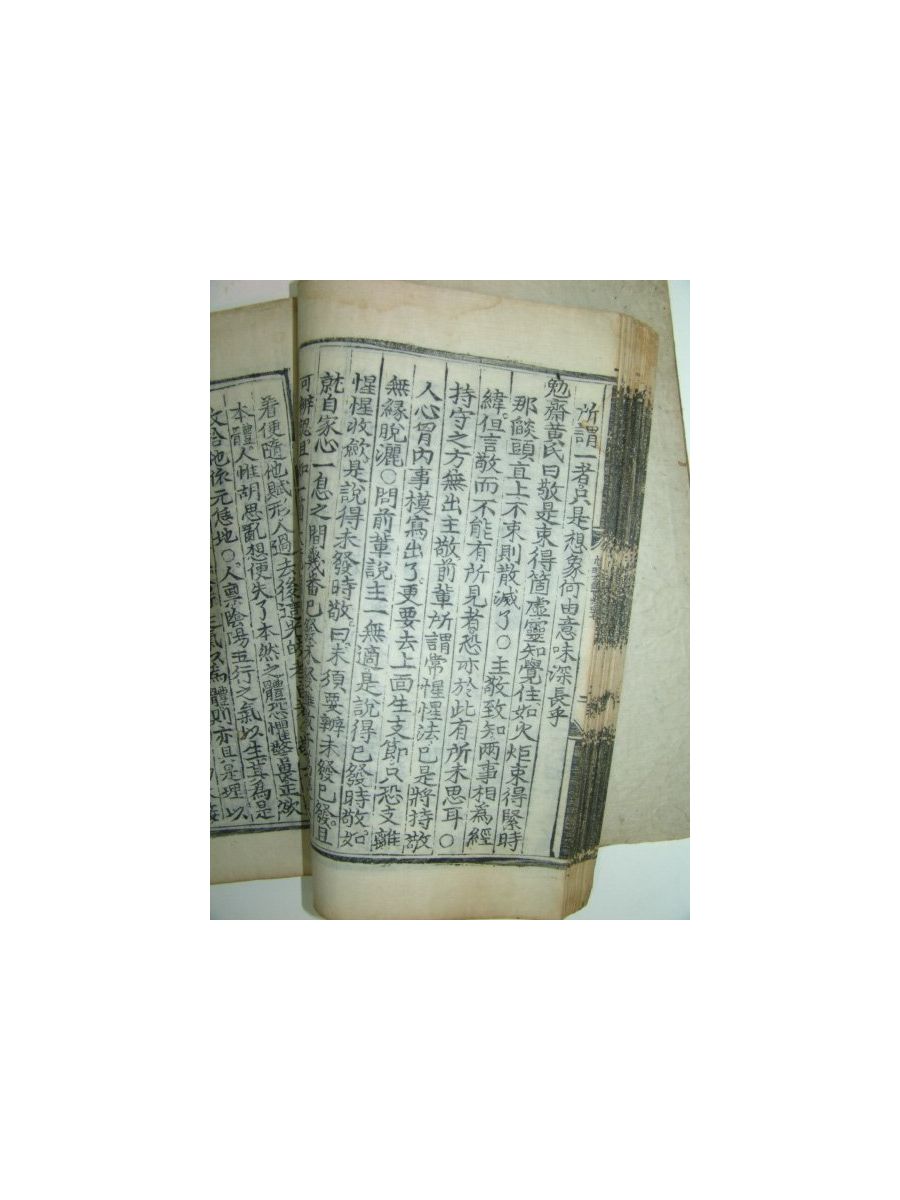 所謂一者只是想象何由意味深長乎
勉齋黃氏曰敬是束得箇虛靈知覺住如火炬束得緊時
那燄頭直上不束則散滅了○主敬致知兩事相為經
緯但言敬而不能有所見者恐亦於此有所未思耳○
持守之方無出主敬前輩所謂常惺惺法已是將持敬
人心胷內事模寫出了更要去上面生支節只恐支離
無緣脫灑○問前輩說主一無適是說得已發時敬如
惺惺收歛是說得未發時敬曰未須要辨未發已發且
就自家心一息之間幾番已發未發
可辨認且如一
着便隨他賦形人過去後這
本體人惟胡思亂想便失了本然之體恐惺
故合他依元恁地○人稟陰陽五行之氣以生
為體則亦是理以